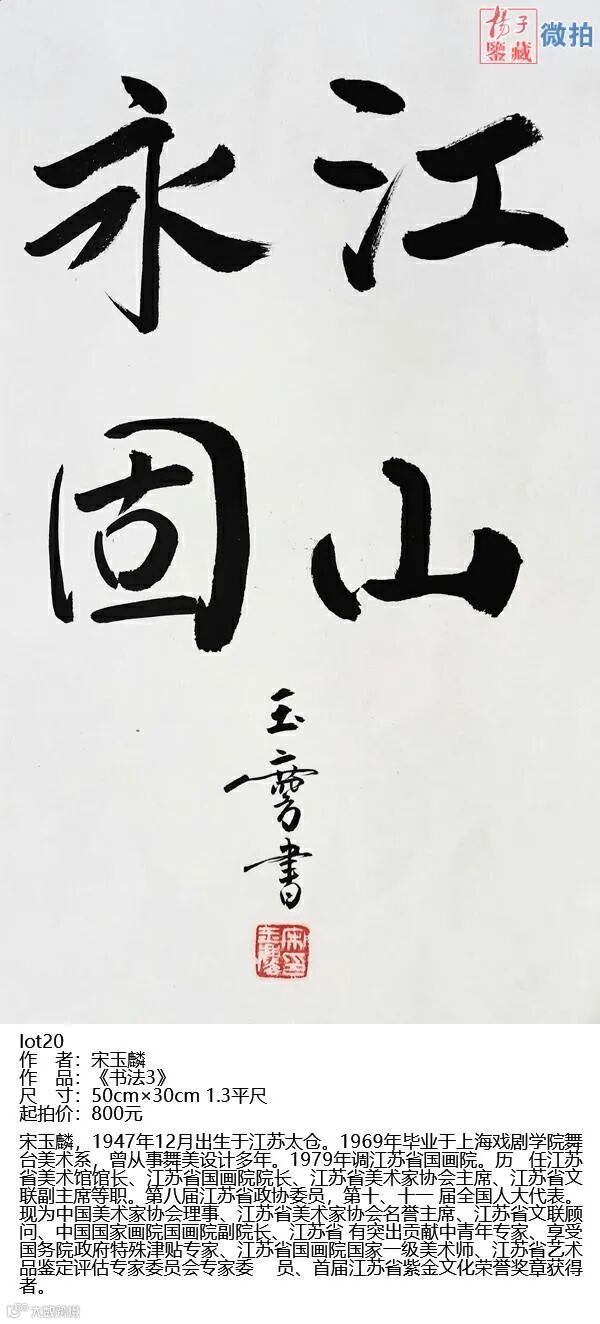 杨子
鉴藏
微拍
江山
永固
玉麐书
lot20
作 者：宋玉麟
作 品：《书法3》
尺 寸：50cm×30cm 1.3平尺
起拍价：800元
宋玉麟，1947年12月出生于江苏太仓。1969年毕业于上海戏剧学院舞
台美术系，曾从事舞美设计多年。1979年调江苏省国画院。历 任江苏
省美术馆馆长、江苏省国画院院长、江苏省美术家协会主席、江苏省文
联副主席等职。第八届江苏省政协委员，第十、十一 届全国人大代表。
现为中国美术家协会理事、江苏省美术家协会名誉主席、江苏省文联顾
问、中国国家画院国画院副院长、江苏省 有突出贡献中青年专家、享受
国务院政府特殊津贴专家、江苏省国画院国家一级美术师、江苏省艺术
品鉴定评估专家委员会专家委 员、首届江苏省紫金文化荣誉奖章获得
者。
大数跨境